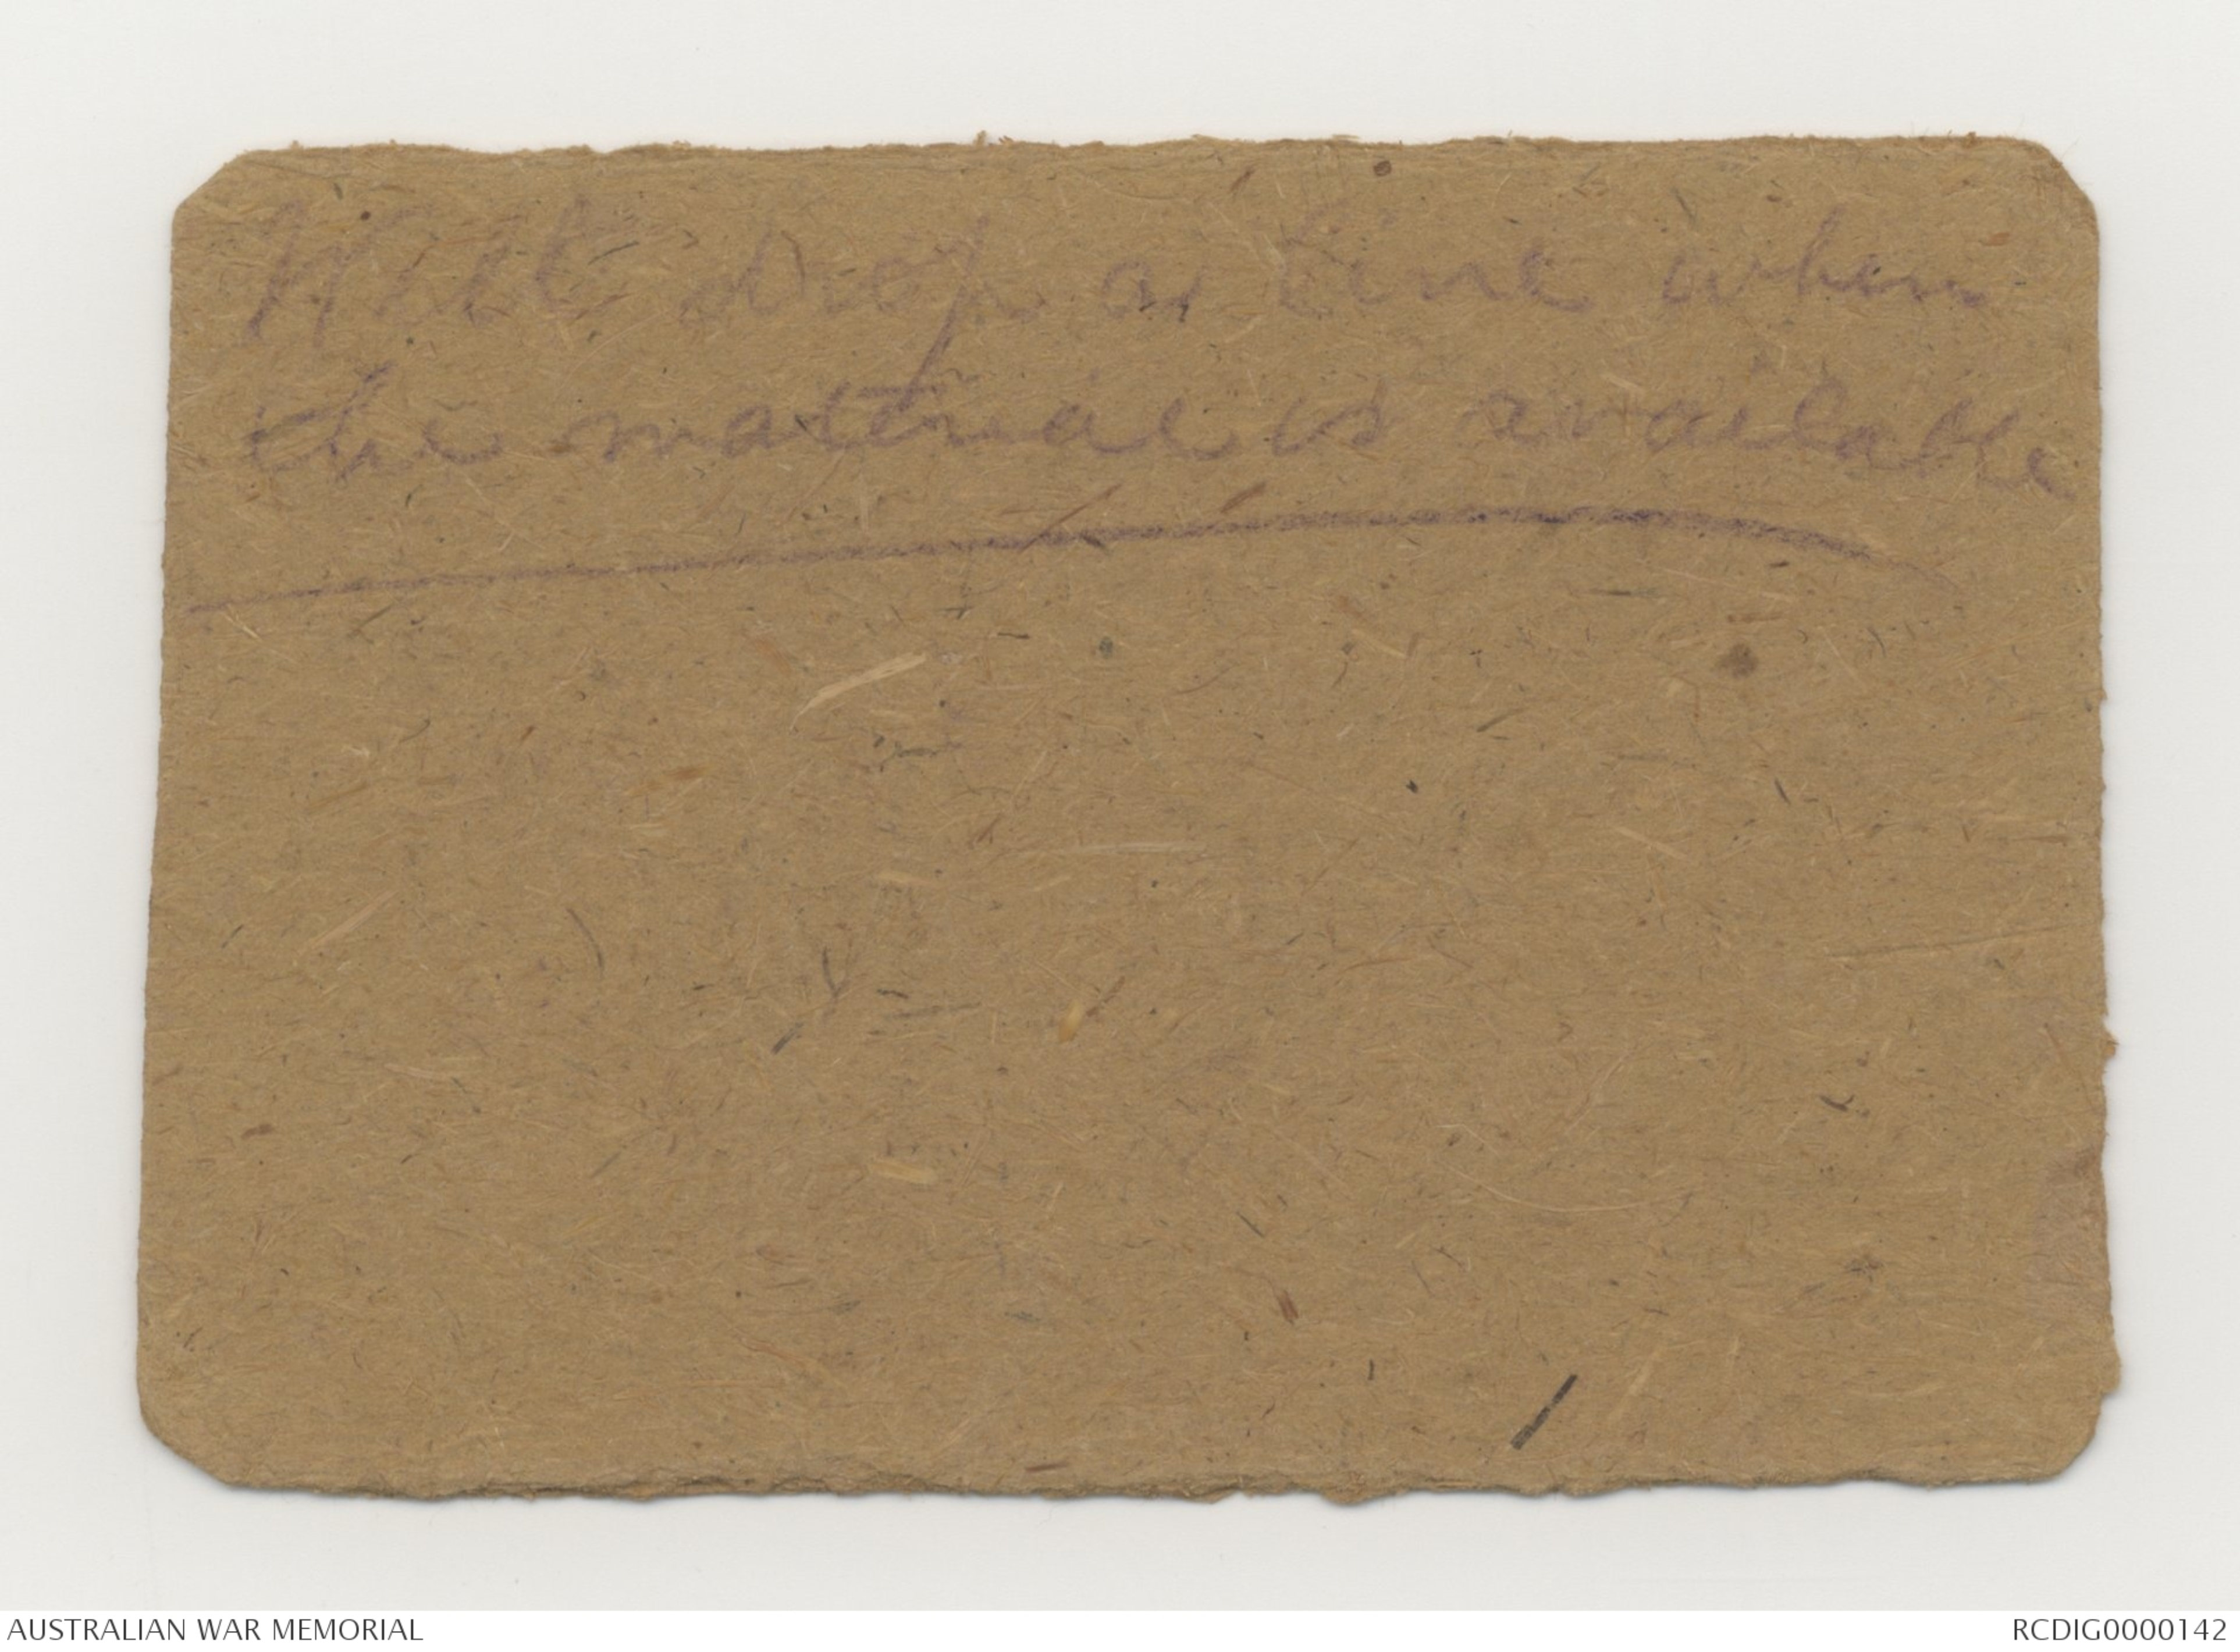 Will drop a line when
the material is available
AUSTRALIAN WAR MEMORIAL
RCDIG0000142